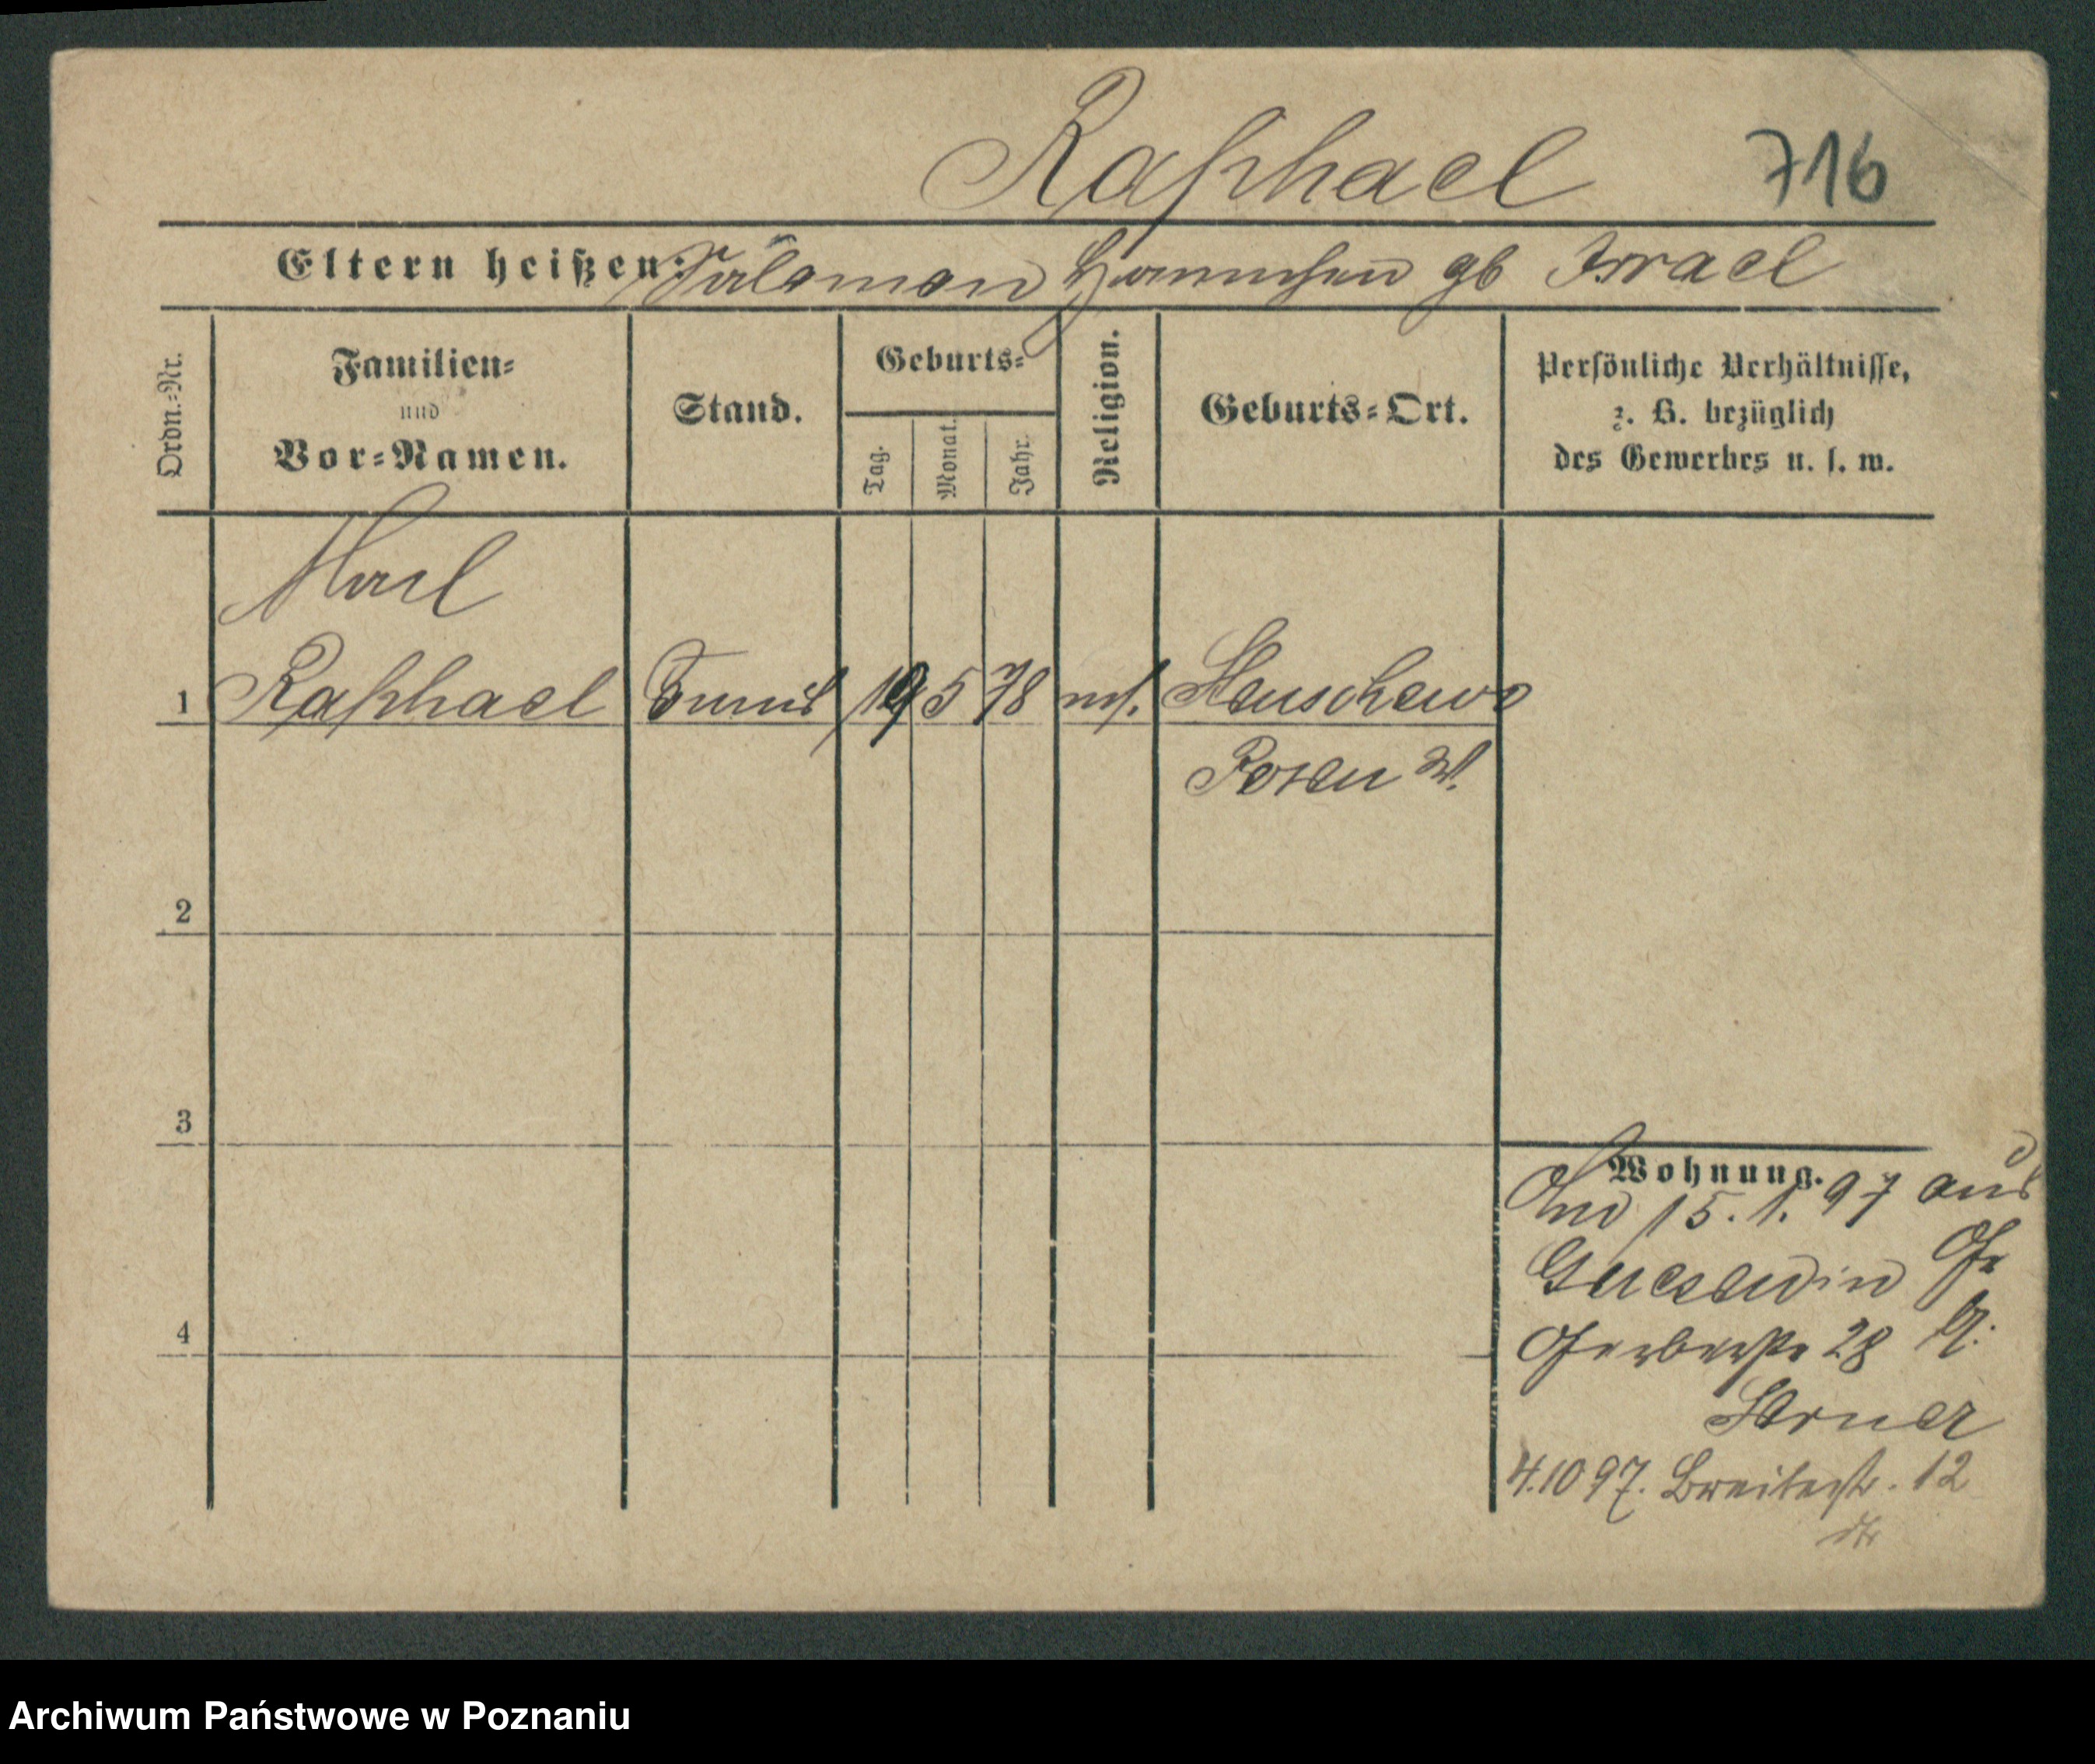 Raphael 716
Eltern heißen: Salomon Hannchen gb Israel
Ordn.-Nr.
Familien-
und
Vor-Namen.
Stand.
Geburts-
Tag.
Monat.
Jahr.
Religion.
Geburts-Ort.
Persönliche Verhältnisse,
z. B. bezüglich
des Gewerbes u. s. w.
1 Raphael 19 5 78 mos. Stenschewo
Posen W.
2
3
4
Wohnung.
15. 1. 97 aus
Gnesen in
Gerberstr 28
4.10 97. Breitestr. 12
Archiwum Państwowe w Poznaniu